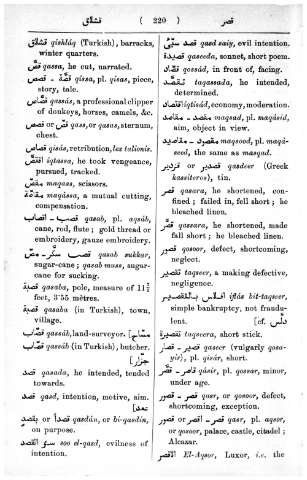 قشلق ( 220 ) قصر
قشلاق qishláq (Turkish), barracks,
winter quarters.
قصّ qassa, he cut, narrated.
قصّة - قصص qissa, pl. qisas, piece,
story, tale.
قصّاص qassás, a professional clipper
of donkeys, horses, camels, &c.
قصّ or قصص qass, or qasas, sternum,
chest.
قصاص qisás, retribution, lex talionis.
اقتصّ iqtassa, he took vengeance,
pursued, tracked.
مقصّ maqass, scissors.
مقاصّة maqássa, a mutual cutting,
compensation.
قصب - اقصاب qasab, pl. aqsáb,
cane, rod, flute; gold thread or
embroidery, gauze embroidery.
قصب سكّر - مصّ qasab sukkar,
sugar-cane; qasab mass, sugar-
cane for sucking.
قصبة qasaba, pole, measure of 11½
feet, 3·55 mètres.
قصبة qasaba (in Turkish), town,
village.
قصّاب qassáb, land-surveyor. [مسّاح
قصّاب qassáb (in Turkish), butcher.
[جزّار
قصد qasada, he intended, tended
towards.
قصد qasd, intention, motive, aim.
[تعمد
قصدا or بقصد qasdán, or bi-qasdin,
on purpose.
سوء القصد soo el-qasd, evilness of
intention.
قصد سيّئ qasd saiy, evil intention.
قصيدة qaseeda, sonnet, short poem.
قصاد qossád, in front of, facing.
تقصّد taqassada, he intended,
determined.
اقتصاد iqtisád, economy, moderation.
مقصد - مقاصد maqsad, pl. maqásid,
aim, object in view.
مقصود - مقاصيد maqsood, pl. maqá-
seed, the same as maqsad.
قصدير or قزدير qasdeer (Greek
kassiteros), tin.
قصر qasara, he shortened, con-
fined; failed in, fell short; he
bleached linen.
قصّر qassara, he shortened, made
fall short; he bleached linen.
قصور qosoor, defect, shortcoming,
neglect.
تقصير taqseer, a making defective,
negligence.
افلاس بالتقصير iflás bit-taqseer,
simple bankruptcy, not fraudu-
lent. [cf. دلّس
تقصيرة taqseera, short stick.
قصير - قصار qaseer (vulgarly qosa-
yir), pl. qisár, short.
قاصر - قصّر qásir, pl. qossar, minor,
under age.
قصر - قصور qasr, or qosoor, defect,
shortcoming, exception.
قصر - قصور or اقصر qasr, pl. aqsor,
or qosoor, palace, castle, citadel;
Alcazar.
الاقصر El-Aqsor, Luxor, i.e. the